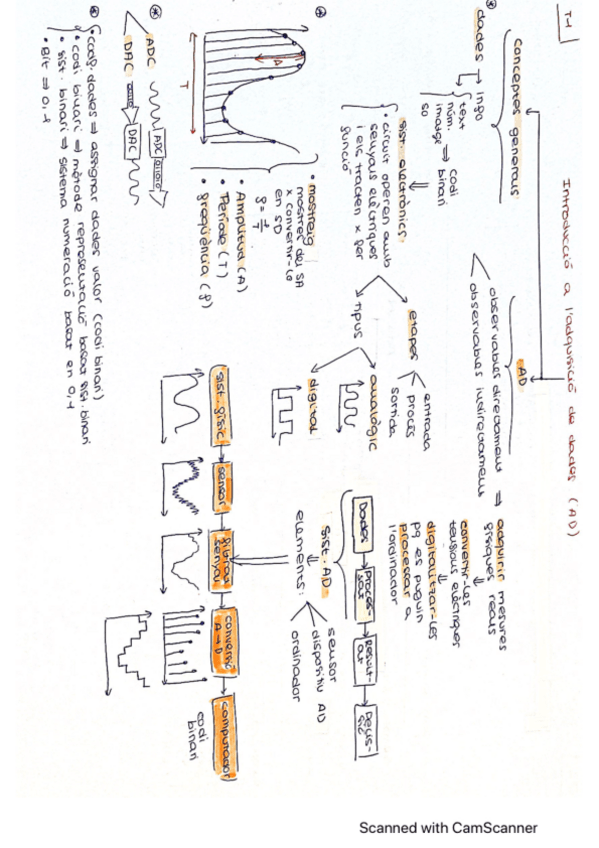 T-1
Introducció a l'adquisició de dades (AD)
conceptes generals
AD
* dades → info
text
núm.
imatge
so
⇒ codi
binari
observables directament
observables indirectament
⇒ adquirir mesures
físiques reals
⇓
convertir-les
tensions elèctriques
⇓
digitalitzar-les
pq es puguin
processar a
l'ordinador
sist. electrònics
• circuit operen amb
senyals elèctriques
i els tracten x fer
funció
etapes
entrada
procés
sortida
tipus
analògic
digital
Dades
Process
sat
Result-
at
Decis-
sió
sist. AD
⇓
elements:
sensor
dispositiu AD
ordinador
A
T
• mostreig
mostres del SA
x convertir-lo
en SD
f = 1/T
• Amplitud (A)
• Període (T)
• freqüència (f)
sist. físic
sensor
filtrar
senyal
conversió
A→D
computador
codi
binari
* ADC
ADC
DAC
DAC
* codf. dades ⇒ assignar dades valor (codi binari)
• codi binari ⇒ mètode representació basat sist. binari
• sist. binari ⇒ sistema numeració basat en 0,1
• Bit ⇒ 0,1
Scanned with CamScanner